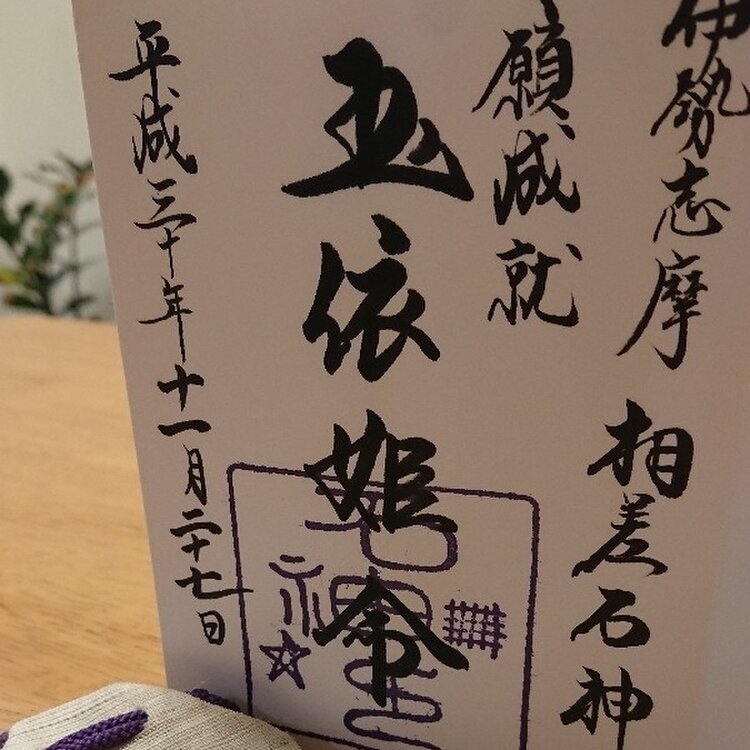 伊勢志摩 相差石神
願成就
玉依姫命
平成三十年十一月二十七日